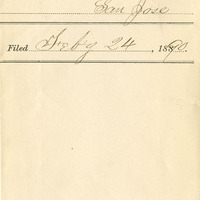 San Jose
Filed Feby 24, 1890.